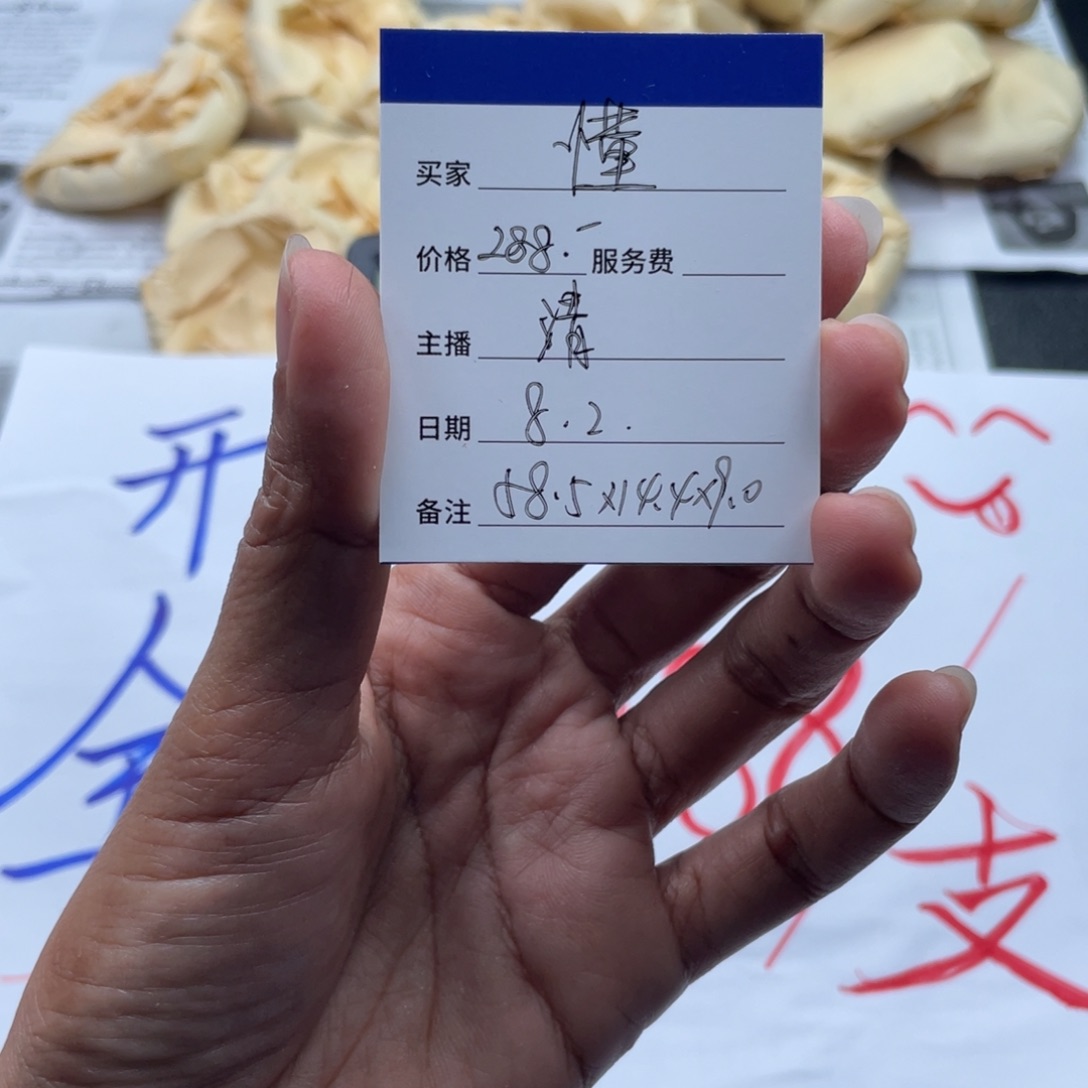 买家 懂
价格 288.- 服务费
主播 清
日期 8.2.
备注 58.5x14.4x9.0
开
全
8
支